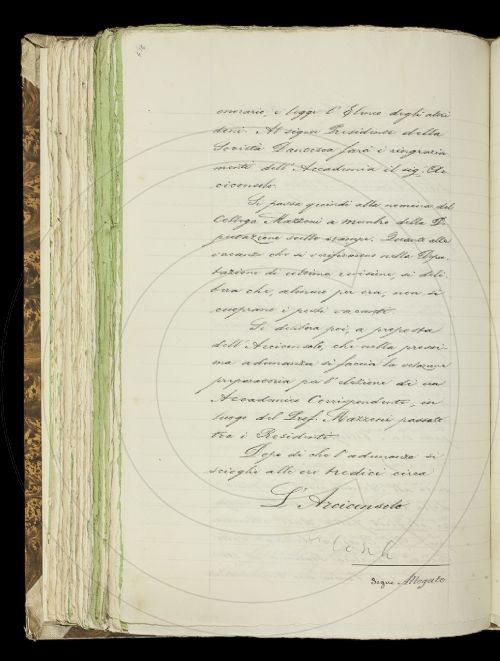 onorario, e legge l'Elenco degli altri
doni. Al signor Presidente della
Società Dantesca farà i ringrazia
menti dell'Accademia il sig. Ar
ciconsolo.
Si passa quindi alla nomina del
Collega Mazzoni a membro della De
putazione sullo stampe. Quanto alle
vacanze che si verificarono nella Depu
tazione di ultima revisione, si deli
bera che, almeno per ora, non si
cuoprano i posti vacanti.
Si delibera poi, a proposta
dell'Arciconsolo, che nella prossi
ma adunanza si faccia la votazione
preparatoria per l'elezione di un
Accademico Corrispondente, in
luogo del Prof. Mazzoni passato
tra i Residenti.
Dopo di che l'adunanza si
scioglie alle ore tredici circa
L'Arciconsolo
Segue Allegato